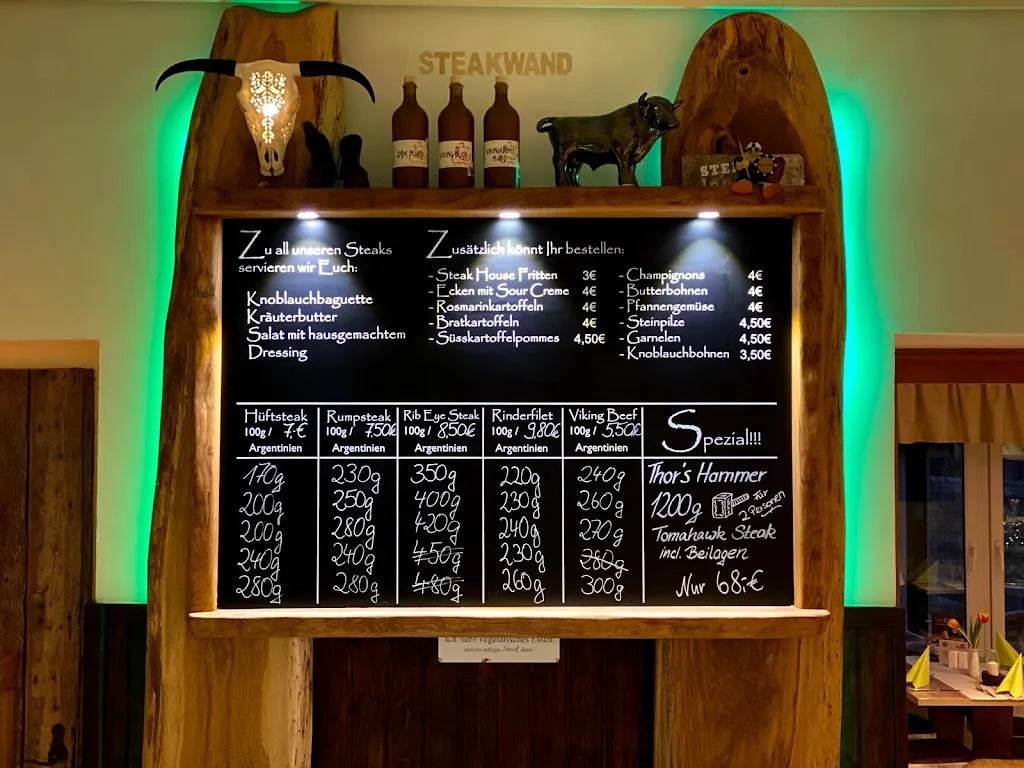 STEAKWAND
Zu all unseren Steaks
servieren wir Euch:
Knoblauchbaguette
Kräuterbutter
Salat mit hausgemachtem
Dressing
Zusätzlich könnt Ihr bestellen:
- Steak House Fritten 3€
- Ecken mit Sour Creme 4€
- Rosmarinkartoffeln 4€
- Bratkartoffeln 4€
- Süsskartoffelpommes 4,50€
- Champignons 4€
- Butterbohnen 4€
- Pfannengemüse 4€
- Steinpilze 4,50€
- Garnelen 4,50€
- Knoblauchbohnen 3,50€
Hüftsteak
100g / 7,-€
Argentinien
170g
200g
200g
240g
280g
Rumpsteak
100g / 7,50€
Argentinien
230g
250g
280g
240g
280g
Rib Eye Steak
100g / 8,50€
Argentinien
350g
400g
420g
450g
480g
Rinderfilet
100g / 9,80€
Argentinien
220g
230g
240g
230g
260g
Viking Beef
100g / 5,50€
Argentinien
240g
260g
270g
280g
300g
Spezial!!!
Thor's Hammer
1200g für
2 Personen
Tomahawk Steak
incl. Beilagen
Nur 68,-€
Ich liebe vegetarisches Essen